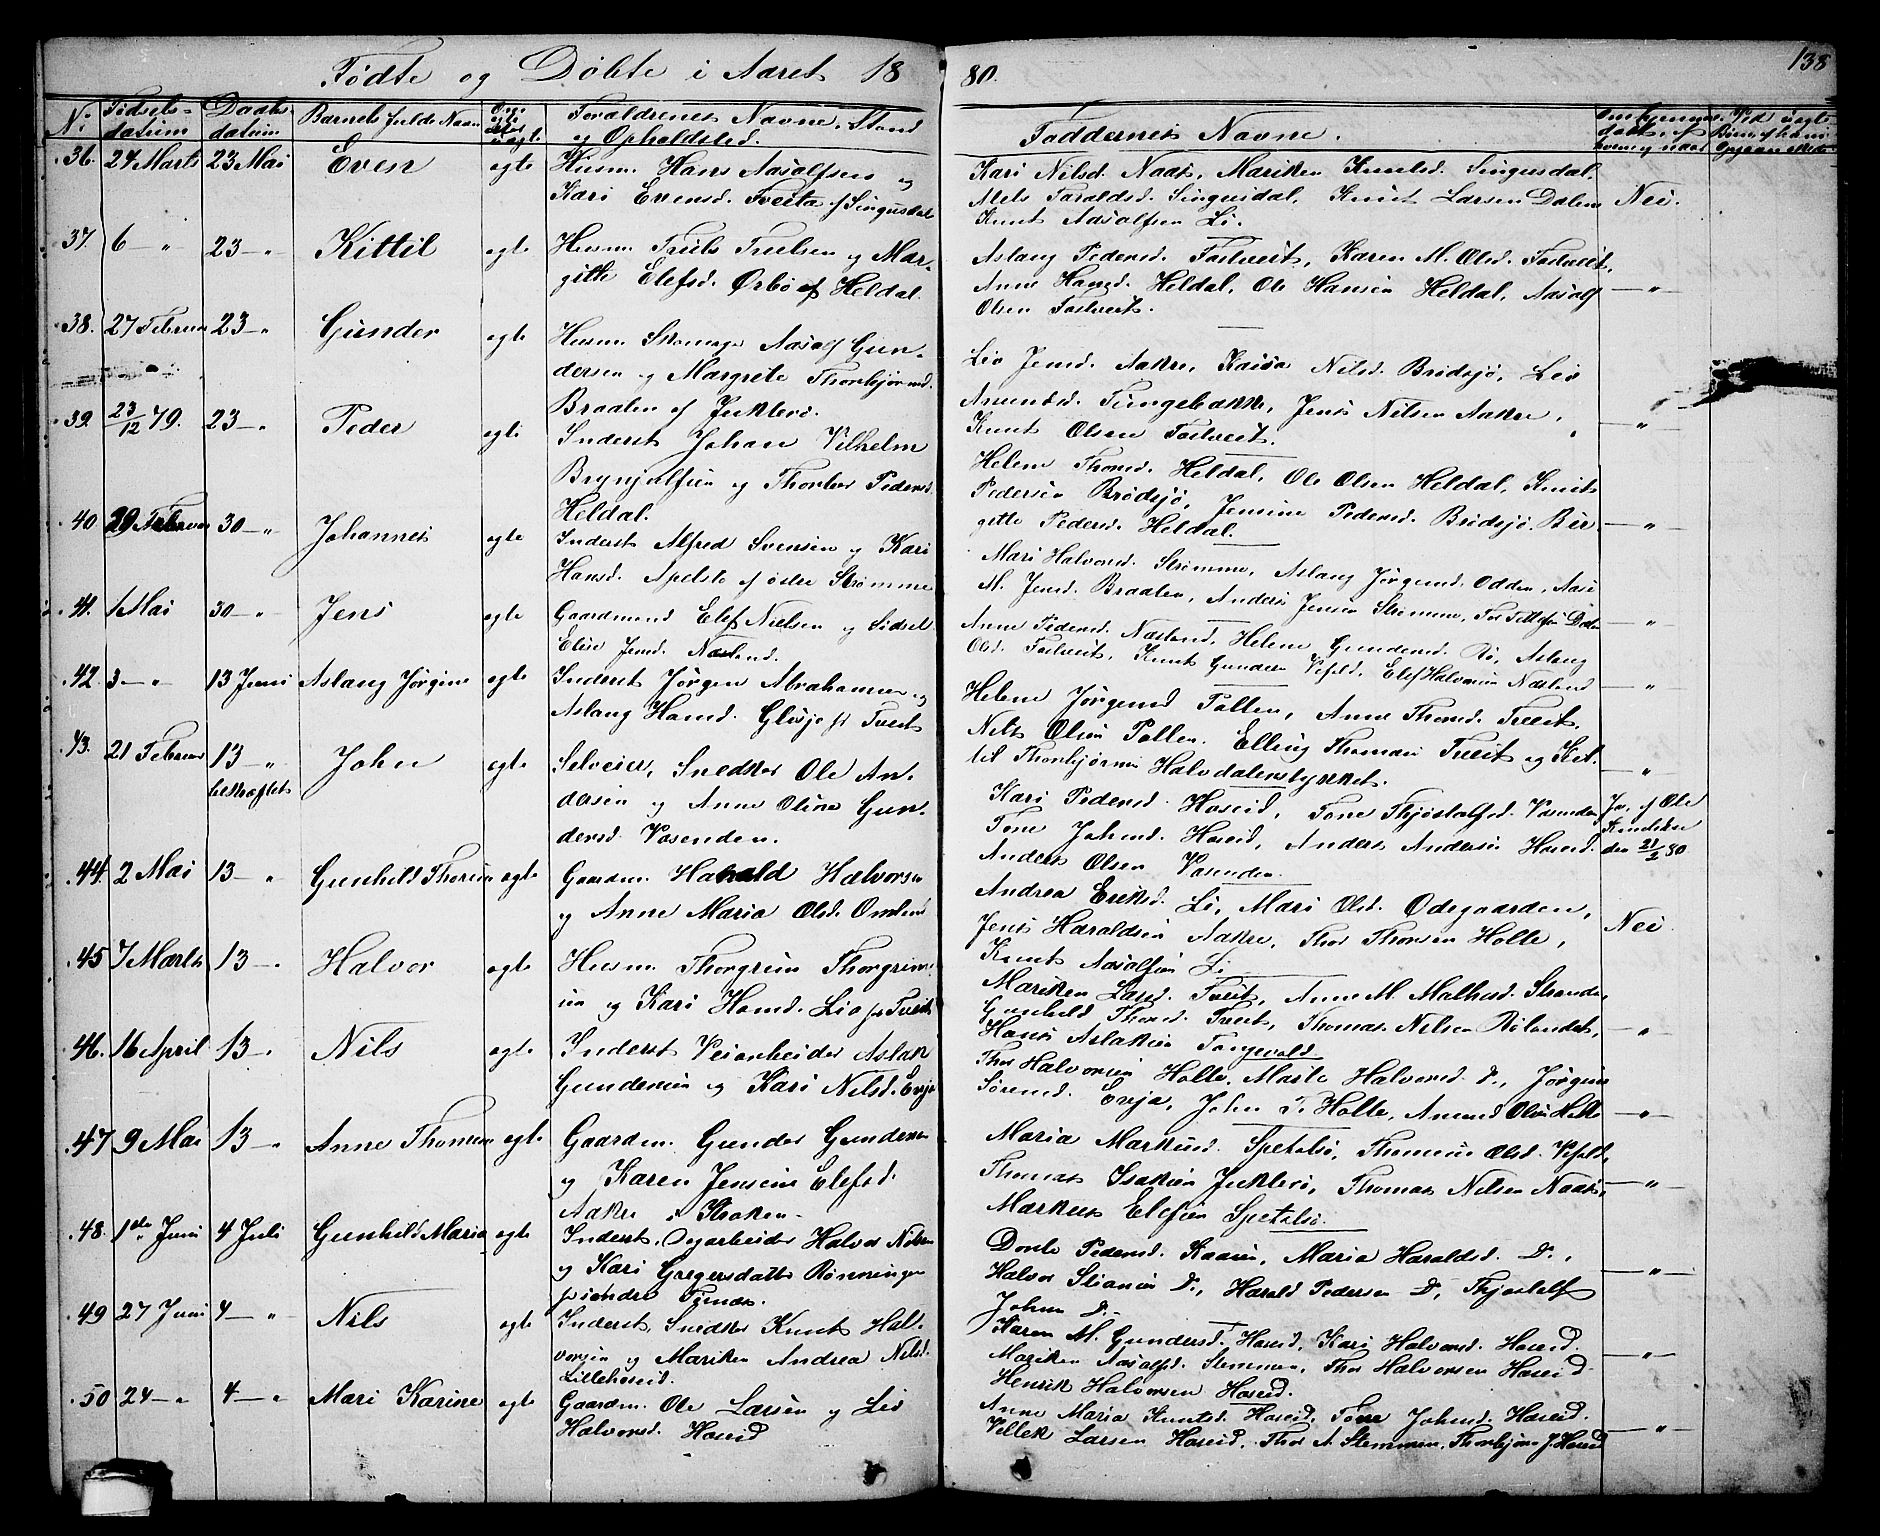 Fødte og Døbte i Aaret 1880.
138
No
Fødsels-
datum
Daabs-
datum
Barnets fulde Navn
Om
ægte
eller
uægte
Forældrenes Navne, Stand
og Opholdsted.
Faddernes Navne.
36. 24 Marts 23 Mai Even egte Husm. Hans Aasolfsen og
Kari Evensd. Tveita af Singusdal
Kari Nilsd. Naas, Mariken Knutsd. Singusdal,
Nils Taraldsd. Singusdal, Knut Larsen Dalen
Knut Aasolfsen Li.
Nei.
37. 6 — " 23 — " Kittil egte Husm. Truls Trulsen og Mar-
gitte Elefsd. Ørbø af Heldal.
Aslaug Pedersd. Fostveit, Karen M. Olsd. Fostveit,
Anne Hansd. Heldal, Ole Hansen Heldal, Aasolf
Olsen Fostveit.
— " —
38. 27 Februar 23 — " Gunder egte Husm. Skomager Aasolf Gun-
dersen og Margrete Thorbjørnsd.
Braaten af Juklerø.
Liv Jensd. Aakre, Kaisa Nilsd. Brødsjø, Liv
Amundsd. Tungebakke, Jens Nilsen Aakre,
Knut Olsen Fostveit.
— " —
39. 23/12 79. 23 — " Peder egte Inderst Johan Vilhelm
Brynjulfsen og Thorbor Pedersd.
Heldal.
Helene Thorsd. Heldal, Ole Olsen Heldal, Knut
Pedersen Brødsjø, Jensine Pedersd. Brødsjø, Bir-
gitte Pedersd. Heldal.
— " —
40 29 Februar 30 — " Johannes egte Inderst Alfred Svensen og Kari
Hansd. Apelsto af østre Strømme
Mari Halvorsd. Strømme, Aslaug Jørgensd. Odden, Aase
M. Jensd. Braaten, Anders Jensen Strømme, Tor Tellefsen Dalen
— " —
41. 1 Mai 30 — " Jens egte Gaardmand Elef Nielsen og Sidsel
Elise Jensd. Næsland.
Anne Pedersd. Næsland, Helene Gundersd. Rø, Aslaug
Olsd. Fostveit, Knut Gundersen Vefald, Elef Halvorsen Næsland
— " —
42. 3 — " 13 Juni Aslaug Jørgine egte Inderst Jørgen Abrahamsen og
Aslaug Hansd. Gløsje pr Tveit
Helene Jørgensd. Pollen, Anne Thorsd. Tveit,
Nils Olsen Pollen, Elling Thomasen Tveit og Kit-
til Thorbjørnsen Halvdalenstykket.
— " —
43. 21 Februar 13 — " John egte Selveier, Snedker Ole An-
bekræftet
dersen og Anne Oline Gun-
dersd. Vasenden.
Kari Pedersd. Haseid, Tone Thjostolfsd. Vasenden,
Tone Johnsd. Haseid, Anders Andersen Haseid,
Anders Olsen Vasenden.
Ja, af Ole
Knudsen
den 21/2 80
44. 2 Mai 13 — " Gunhild Thorine egte Gaardm. Harald Halvorsen
og Anne Maria Olsd. Omland
Andrea Eriksd. Li, Mari Olsd. Ødegaarden,
Jens Haraldsen Aakre, Thor Thorsen Holte,
Knut Aasolfsen Li.
Nei.
45 7 Marts 13 — " Halvor egte Husm. Thorgrim Thorgrim-
sen og Kari Hansd. Lia pr Tveit
Mariken Larsd. Tveit, Anne M. Mathisd. Strande,
Gunhild Thorsd. Tveit, Thomas Nilsen Røland,
Hans Aslaksen Tangevald.
— " —
46. 16 April 13 — " Nils egte Inderst Veiarbeider Aslak
Gundersen og Kari Nilsd. Evja
Thor Halvorsen Holte, Marte Halvorsd. Do, Jørgine
Sørensd. Evja, John T. Holte, Amund Olsen Holte
— " —
47 9 Mai 13 — " Anne Thomine egte Gaardm. Gunder Gundersen
og Karen Jensine Elefsd.
Aakre i Kroken.
Maria Markusd. Spetalsø, Thomine Olsd. Vefald,
Thomas Isaksen Juklerø, Thomas Nilsen Naas,
Markus Elefsen Spetalsø.
— " —
48. 1ste Juni 4 Juli Gunhild Maria egte Inderst, Dagarbeider Halvor Nilsen
og Kari Gregersdatter Rønningen
pr søndre Tveit.
Dorte Pedersd. Kaasen, Maria Haraldsd. Do.,
Halvor Stiansen Do., Harald Pedersen Do, Thjostolf
Johnsen Do.
— " —
49 27 Juni 4 — " Nils egte Inderst, Snedker Knut Hal-
vorsen og Mariken Andrea Nilsd.
Lillehaseid.
Karen M. Gundersd. Haseid, Kari Halvorsd. Haseid.
Mariken Aasolfsd. Stemmen, Thor Halvorsen Haseid.
Henrik Halvorsen Haseid.
— " —
50 24 — " 4 — " Mari Karine egte Gaardm. Ole Larsen og Liv
Halvorsd. Haseid
Anne Maria Knutsd. Haseid, Tone Johnsd. Haseid.
Vellek Larsen Haseid, Thor A. Stemmen, Thorbjørn J. Haseid
— " —